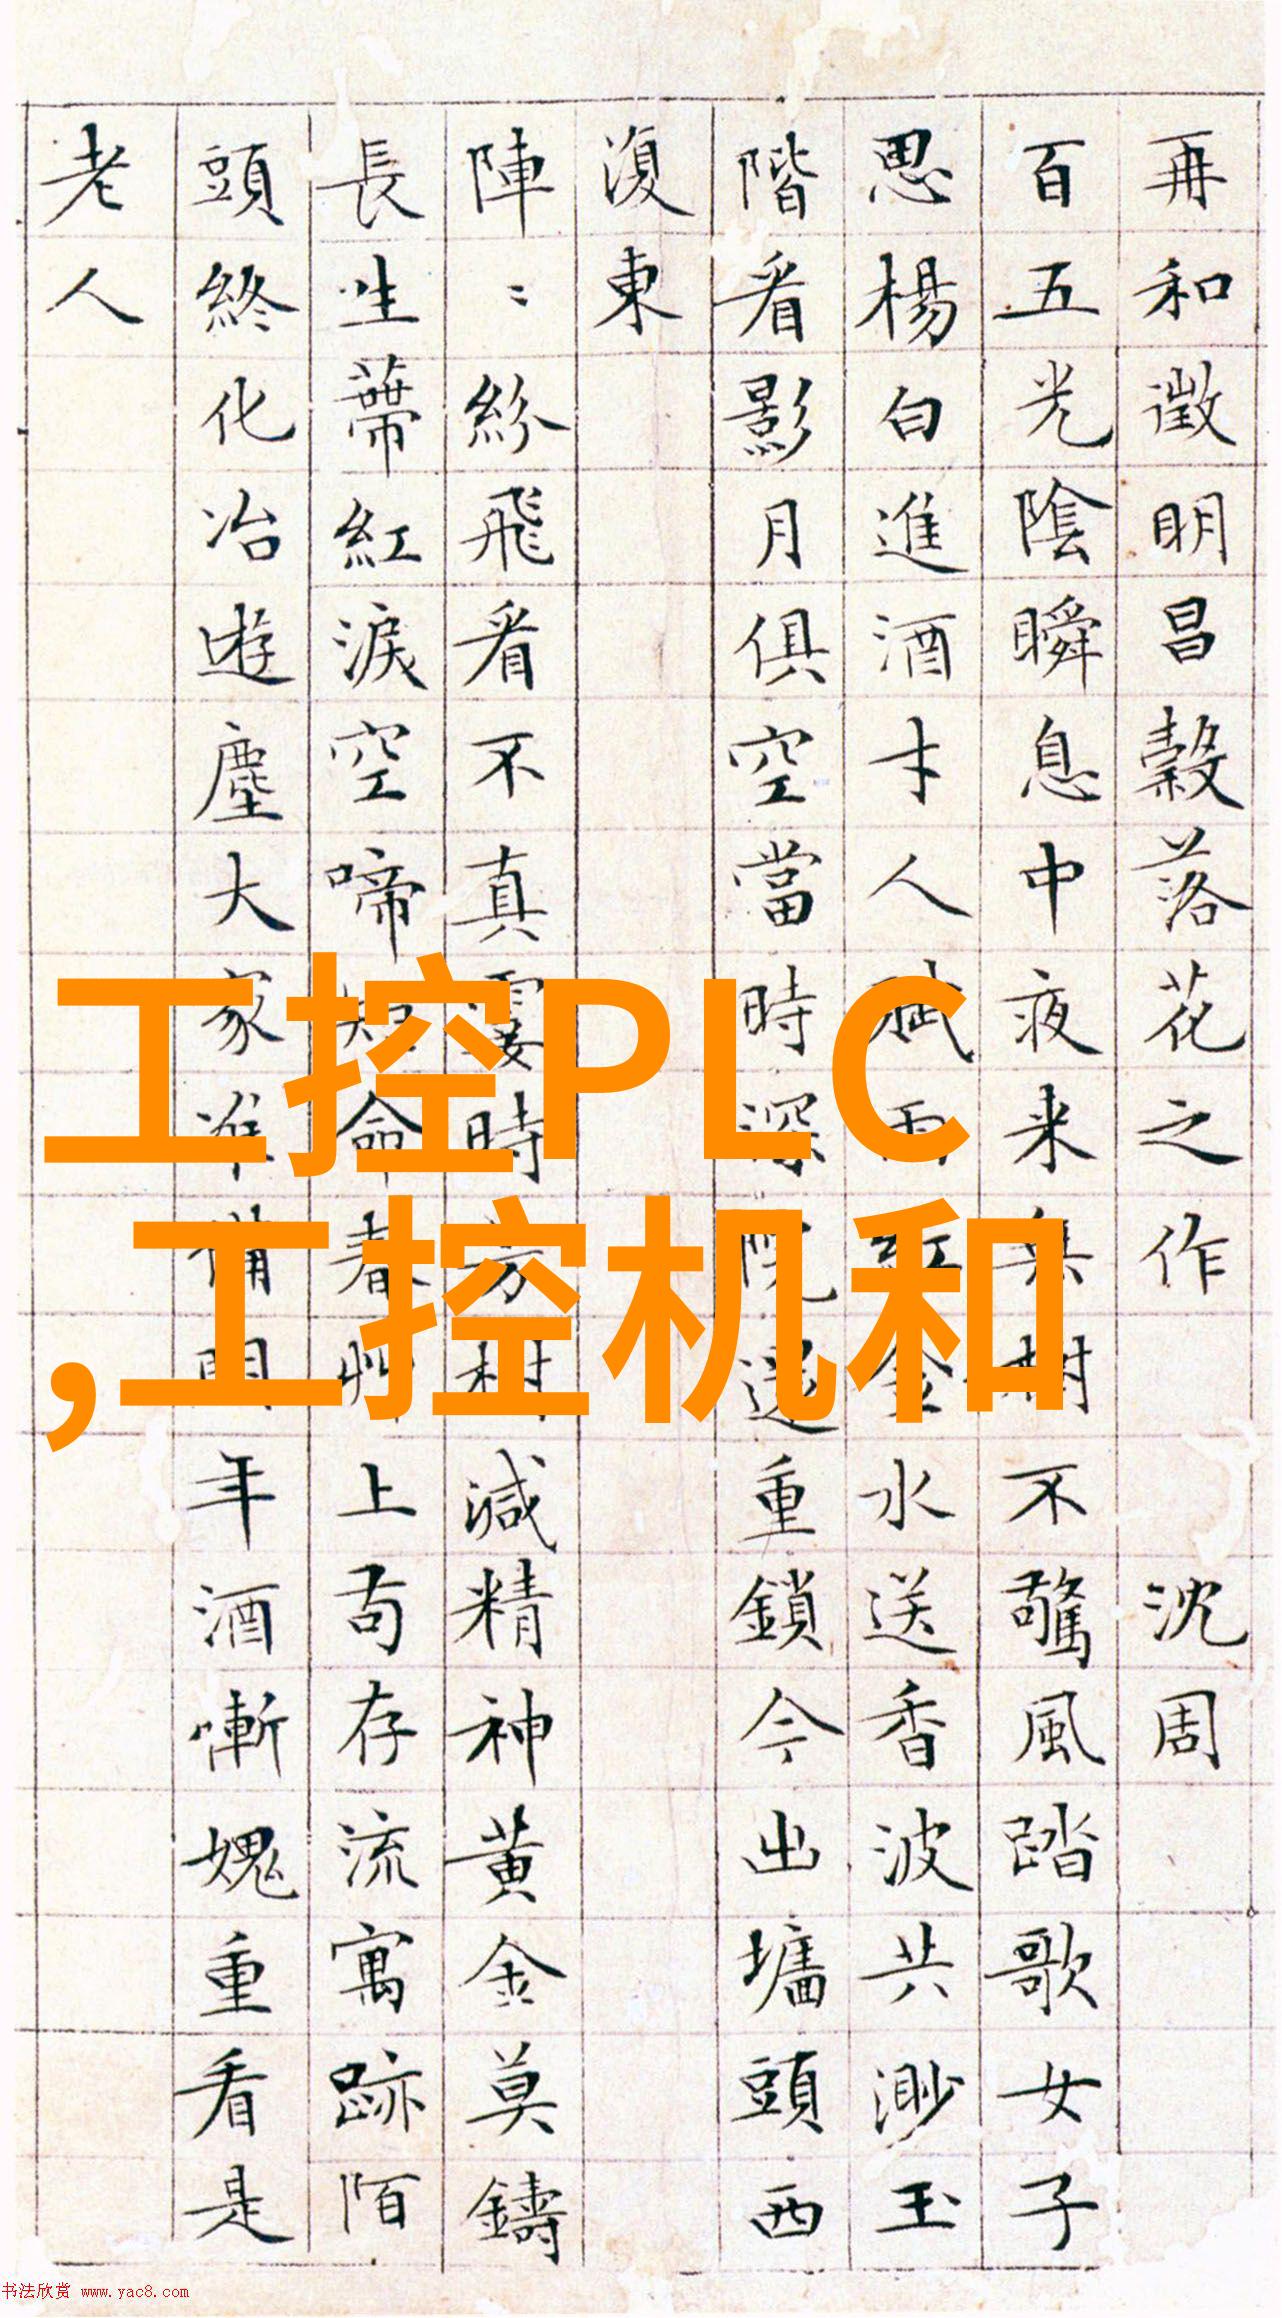 再和徵明昌穀落花之作 沈周
百五光陰瞬息中夜来集樹不驚風踏歌女子
思楊白進酒才人賦雨紅金水送香波共渺玉
階看影月俱空當時深院還重鎖今出墻頭西
復東
陣〻紛飛看不真霎時芳樹減精神黃金莫鑄
長生蒂紅淚空啼短命春艸上苟存流寓跡陌
頭終化冶遊塵大家準備開年酒慚愧重看是
老人
工控PLC
,工控机和
书法欣赏 www.yac8.com